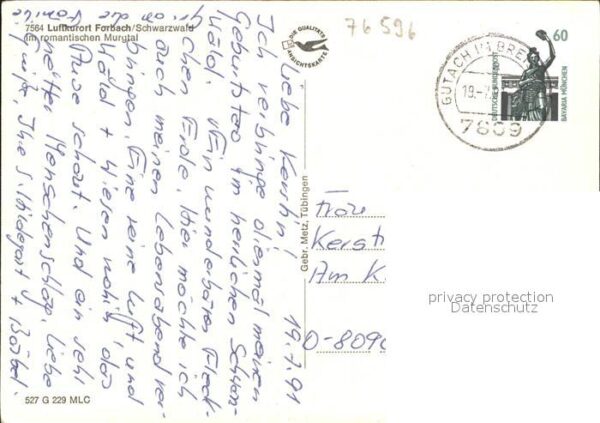 7564 Luftkurort Forbach/Schwarzwald
im romantischen Murgtal
DIE QUALITÄTS
ANSICHTSKARTE
76 596
60
DEUTSCHE BUNDESPOST
BAVARIA MÜNCHEN
GUTACH
19.-7.
7809
19.7.91
Liebe Kerstin!
Ich verbringe diesmal meinen
Geburtstag im herrlichen Schwarz-
wald. Ein wunderbares Fleck-
chen Erde. Hier möchte ich
auch meinen Lebensabend ver-
bringen. Eine reine Luft und
Wald + Wiesen wohin das
Auge schaut. Und ein sehr
netter Menschenschlag. Liebe
Grüße, Ihre Hildegart + Bärbel.
Gebr. Metz, Tübingen
Frau
Kerst
Am K
O-8090
privacy protection
Datenschutz
527 G 229 MLC